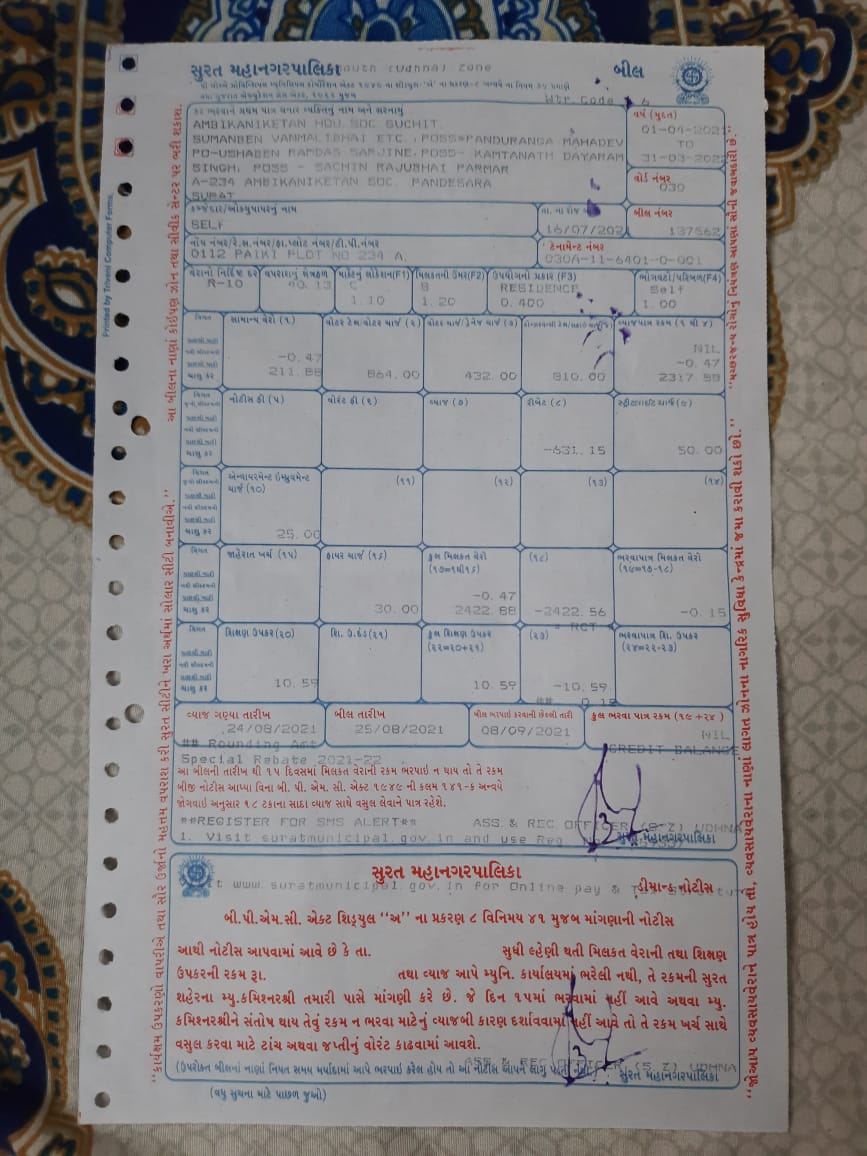 સુરત મહાનગરપાલિકા South (Udhna) Zone બીલ
Wtr. Code
કર ભરવાને પ્રથમ પાત્ર થનાર વ્યક્તિનું નામ અને સરનામું
વર્ષ (મુદત)
AMBIKANIKETAN HOU SOC SUCHIT.
01-04-2021
SUMANBEN VANMALIBHAI ETC., POSS*PANDURANGA MAHADEV
TO
PO-USHABEN RAMDAS SARJINE, POSS- KAMTANATH DAYARAM
31-03-2022
SINGH, POSS - SACHIN RAJUBHAI PARMAR
વોર્ડ નંબર
A-234 AMBIKANIKETAN SOC. PANDESARA
030
SURAT
કબ્જેદાર/ઓક્યુપાયરનું નામ
બીલ નંબર
SELF
16/07/202
137562
ટેનામેન્ટ નંબર
0112 PAIKI PLOT NO 234 A.
030A-11-6401-0-001
વેરાનો નિર્દિષ્ટ દર વપરાશનું ક્ષેત્રફળ (F1) મિલકતની ઉંમર(F2) ઉપયોગનો પ્રકાર (F3) (F4)
R-10 40.13 C B RESIDENCE Self
1.10 1.20 0.400 1.00
વિગત સામાન્ય વેરો (૧) (૨) (૩) (૧ થી ૪)
NIL
-0.47 -0.47
ચાલુ કર 211.88 864.00 432.00 810.00 2317.88
વિગત નોટીસ ફી (૫) વોરંટ ફી (૬) વ્યાજ (૭) રીબેટ (૮) સ્ટ્રીટલાઈટ ચાર્જ (૯)
ચાલુ કર -631.15 50.00
વિગત એન્વાયરમેન્ટ ઈમ્પ્રુવમેન્ટ (૧૧) (૧૨) (૧૩) (૧૪)
ચાર્જ (૧૦)
ચાલુ કર 25.00
વિગત જાહેરાત ખર્ચ (૧૫) ફાયર ચાર્જ (૧૬) કુલ મિલકત વેરો (૧૮) ભરવાપાત્ર મિલકત વેરો
(૧૭=૧થી૧૬) (૧૯=૧૭-૧૮)
-0.47
ચાલુ કર 30.00 2422.88 -2422.56 -0.15
* RCT *
વિગત શિક્ષણ ઉપકર(૨૦) શિ. ઉ.દંડ(૨૧) કુલ શિક્ષણ ઉપકર (૨૩) ભરવાપાત્ર શિ. ઉપકર
(૨૨=૨૦+૨૧) (૨૪=૨૨-૨૩)
ચાલુ કર 10.59 10.59 -10.59
## 0.15
વ્યાજ ગણ્યા તારીખ બીલ તારીખ બીલ ભરપાઇ કરવાની છેલ્લી તારીખ કુલ ભરવા પાત્ર રકમ (૧૯+૨૪)
24/08/2021 25/08/2021 08/09/2021 NIL
## Rounding Amt CREDIT BALANCE
Special Rebate 2021-22
આ બીલની તારીખ થી ૧૫ દિવસમાં મિલકત વેરાની રકમ ભરપાઇ ન થાય તો તે રકમ
બીજી નોટીસ આપ્યા વિના બી. પી. એમ. સી. એક્ટ ૧૯૪૯ની કલમ ૧૪૧-ક અન્વયે
જોગવાઇ અનુસાર ૧૮ ટકાના સાદા વ્યાજ સાથે વસુલ લેવાને પાત્ર રહેશે.
**REGISTER FOR SMS ALERT** ASS & REC OFFICER (S Z) UDHNA
1. Visit suratmunicipal.gov.in and use Reg સુરત મહાનગરપાલિકા
સુરત મહાનગરપાલિકા
www.suratmunicipal.gov.in for Online pay & ડીમાન્ડ નોટીસ
બી.પી.એમ.સી. એક્ટ શિડ્યુલ "અ" ના પ્રકરણ ૮ વિનિમય ૪૧ મુજબ માંગણાની નોટીસ
આથી નોટીસ આપવામાં આવે છે કે તા. સુધી લ્હેણી થતી મિલકત વેરાની તથા શિક્ષણ
ઉપકરની રકમ રૂા. તથા વ્યાજ આપે મ્યુનિ. કાર્યાલયમાં ભરેલી નથી, તે રકમની સુરત
શહેરના મ્યુ.કમિશ્નરશ્રી તમારી પાસે માંગણી કરે છે. જે દિન ૧૫માં ભરવામાં નહીં આવે અથવા મ્યુ.
કમિશ્નરશ્રીને સંતોષ થાય તેવું રકમ ન ભરવા માટેનું વ્યાજબી કારણ દર્શાવવામાં નહીં આવે તો તે રકમ ખર્ચ સાથે
વસુલ કરવા માટે ટાંચ અથવા જપ્તીનું વોરંટ કાઢવામાં આવશે.
ASS & REC OFFICER (S Z) UDHNA
(ઉપરોક્ત બીલનાં નાણાં નિયત સમય મર્યાદામાં આપે ભરપાઇ કરેલ હોય તો આ નોટીસ આપને લાગુ પડતી નથી.) સુરત મહાનગરપાલિકા
(વધુ સુચના માટે પાછળ જુઓ)
Printed by Triveni Computer Forms.
આ બીલના નાણાં કોઇપણ ઝોન તથા સીવીક સેન્ટર પર ભરી શકાશે.
"કાર્યક્ષમ ઉપકરણો વાપરીએ તથા સૌર ઉર્જાનો મહત્તમ વપરાશ કરી સુરત સીટીને ખરા અર્થમાં સોલાર સીટી બનાવીએ."
"મચ્છરજન્ય રોગોનું નિયંત્રણ આપણાં સૌની જવાબદારી છે."
"જોઆપ વ્યવસાયવેરાને પાત્ર હોય તો, વ્યવસાયવેરાના નાણાં લાગત ઝોનના નાગરિક સુવિધા કેન્દ્રમાં જમા કરાવી શકો છો."